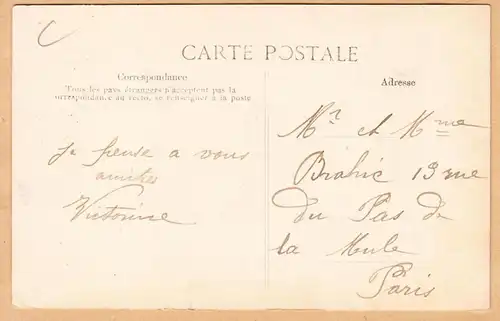 CARTE POSTALE
Correspondance
Tous les pays étrangers n'acceptent pas la
correspondance au recto, se renseigner à la poste
Adresse
Je pense a vous
amitiés
Victorine
Mr et Mme
Brahic 13 rue
du Pas de
la Mule
Paris